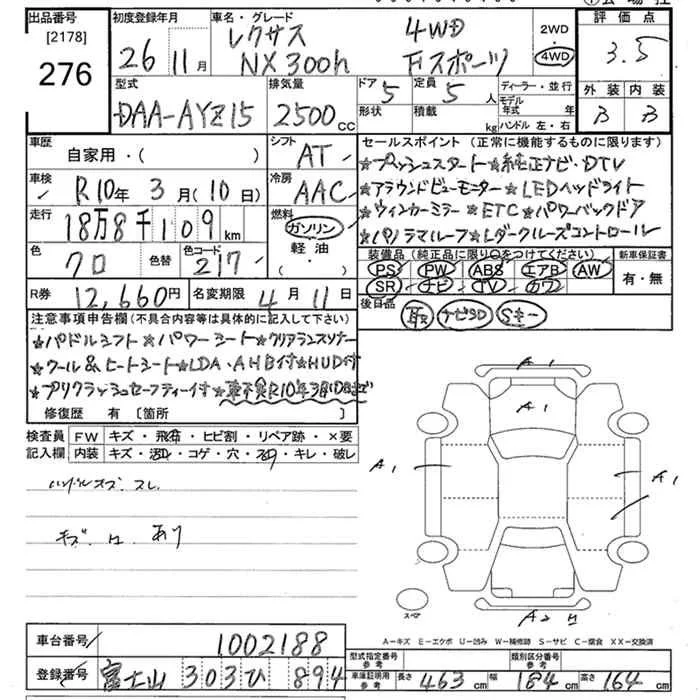 出品番号 初度登録年月 車名・グレード 2WD 評価点
[2178] 26年 11月 レクサス 4WD 4WD 3.5
276 NX300h Fスポーツ 外装 内装
型式 排気量 ドア 定員 ディーラー・並行 B B
DAA-AYZ15 2500cc 5 5人 モデル年式 年
形状 積載 kg ハンドル 左・右
車歴 自家用・( ) シフト AT セールスポイント (正常に機能するものに限ります)
車検 R10年3月(10日) 冷房 AAC ★プッシュスタート★純正ナビ・DTV
走行 18万8千109km 燃料 ガソリン 軽油 ( ・ ) ★アラウンドビューモニター★LEDヘッドライト
★ウィンカーミラー★ETC★パワーバックドア
★パノラマルーフ★レダークルーズコントロール
色 クロ 色替 色コード 217 装備品 (純正品に限り○をつけてください) 新車保証書
PS PW ABS エアB AW 有・無
SR ナビ TV カワ
R券 12,660円 名変期限 4月11日 後日品
取 ナビSD Sキー
注意事項申告欄 (不具合内容等は具体的に記入して下さい)
★パドルシフト★パワーシート★クリアランスソナー
★クール&ヒートシート★LDA・AHB付★HUD付
★プリクラッシュセーフティー付★車検R10年3月10日まで
修復歴 有 [箇所 ]
検査員 FW キズ・飛石・ヒビ割・リペア跡・×要
記入欄 内装 キズ・汚れ・コゲ・穴・スレ・キレ・破レ
ハンドルスレ
キズ あり
A1
A1
A1
A1
スペア
A2
A-キズ E-エクボ U-凹み W-補修跡 S-サビ C-腐食 XX-交換済
車台番号 1002188
登録番号 富士山 303 ひ 894
型式指定番号 参考 類別区分番号 参考
車庫証明用 参考 長さ 463cm 幅 184cm 高さ 164cm